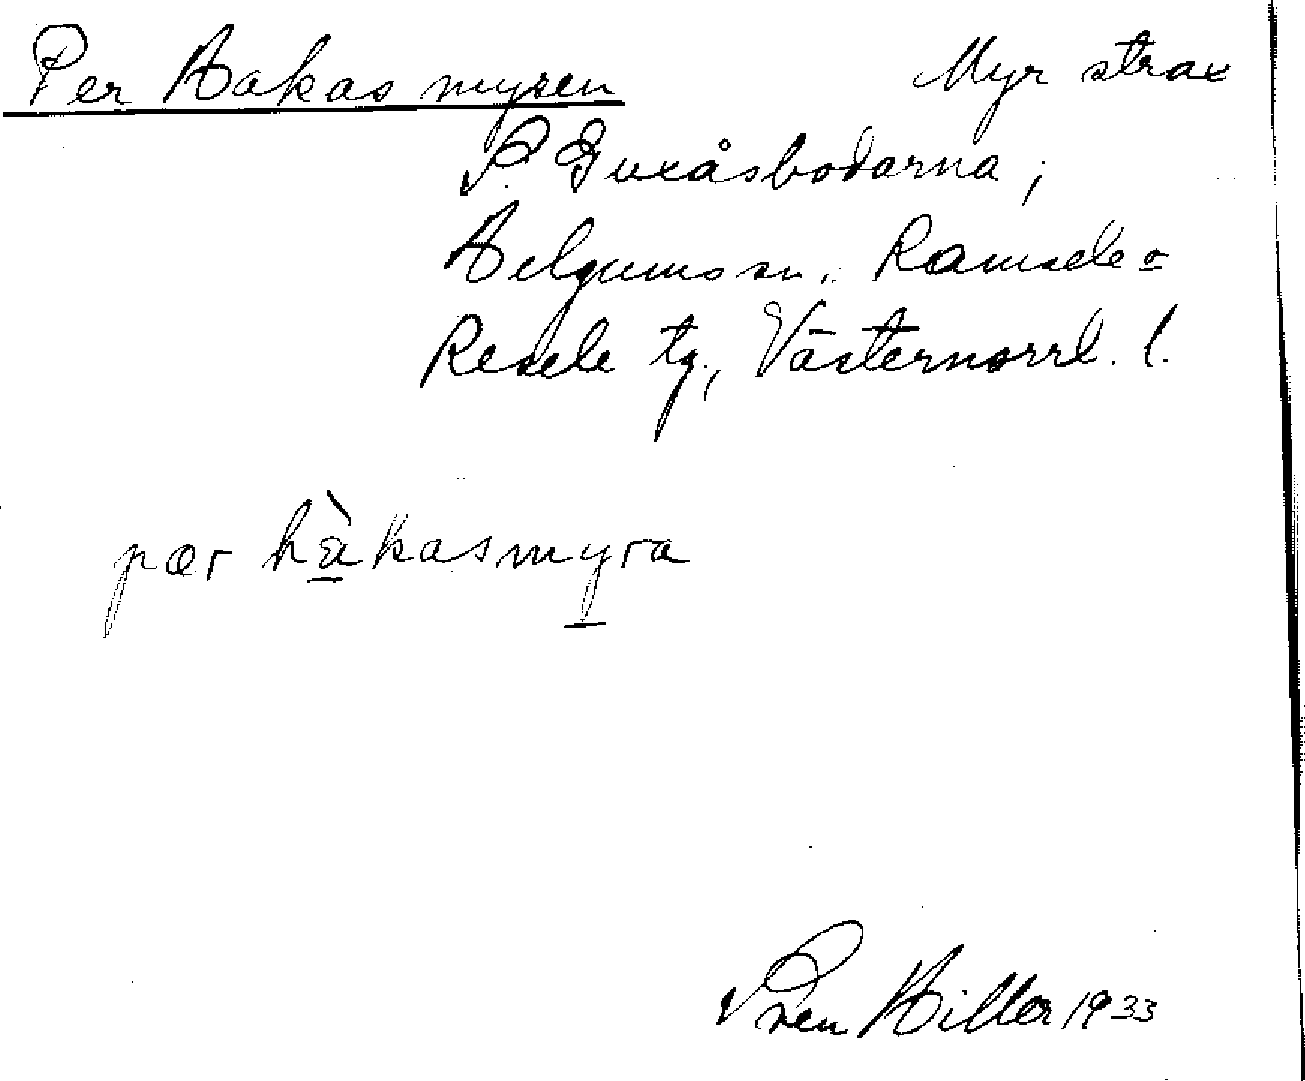 Per Hakas myren Myr strax
S. Guxåsbodarna;
Helgums sn., Ramsele o
Resele tg., Västernorrl. l.
pær hàkasmyra
Sven Hiller 1933